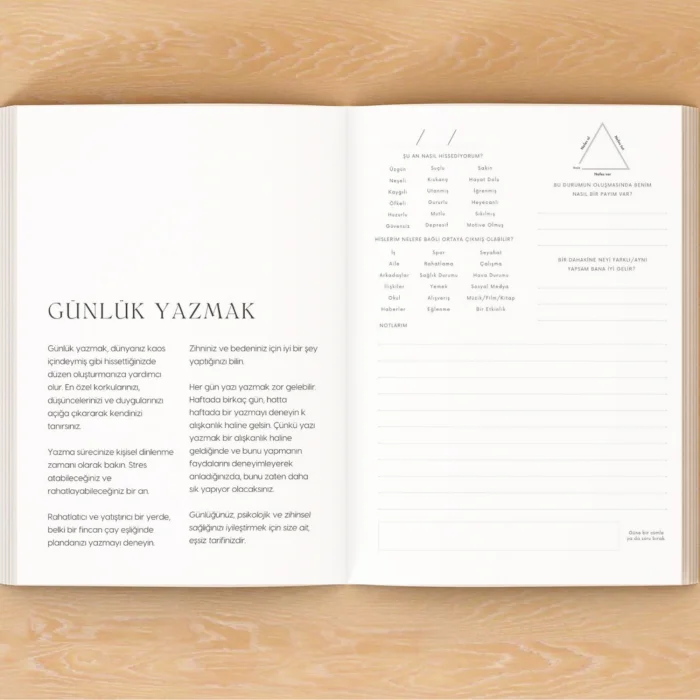 GÜNLÜK YAZMAK
Günlük yazmak, dünyanız kaos
içindeymiş gibi hissettiğinizde
düzen oluşturmanıza yardımcı
olur. En özel korkularınızı,
düşüncelerinizi ve duygularınızı
açığa çıkararak kendinizi
tanırsınız.
Yazma sürecinize kişisel dinlenme
zamanı olarak bakın. Stres
atabileceğiniz ve
rahatlayabileceğiniz bir an.
Rahatlatıcı ve yatıştırıcı bir yerde,
belki bir fincan çay eşliğinde
plandanızı yazmayı deneyin.
Zihniniz ve bedeniniz için iyi bir şey
yaptığınızı bilin.
Her gün yazı yazmak zor gelebilir.
Haftada birkaç gün, hatta
haftada bir yazmayı deneyin k
alışkanlık haline gelsin. Çünkü yazı
yazmak bir alışkanlık haline
geldiğinde ve bunu yapmanın
faydalarını deneyimleyerek
anladığınızda, bunu zaten daha
sık yapıyor olacaksınız.
Günlüğünüz, psikolojik ve zihinsel
sağlığınızı iyileştirmek için size ait,
eşsiz tarifinizdir.
/ /
ŞU AN NASIL HİSSEDİYORUM?
Üzgün Suçlu Sakin
Neşeli Kıskanç Hayat Dolu
Kaygılı Utanmış İğrenmiş
Öfkeli Gururlu Heyecanlı
Huzurlu Mutlu Sıkılmış
Güvensiz Depresif Motive Olmuş
HİSLERİM NELERE BAĞLI ORTAYA ÇIKMIŞ OLABİLİR?
İş Spor Seyahat
Aile Rahatlama Çalışma
Arkadaşlar Sağlık Durumu Hava Durumu
İlişkiler Yemek Sosyal Medya
Okul Alışveriş Müzik/Film/Kitap
Haberler Eğlenme Bir Etkinlik
NOTLARIM
BU DURUMUN OLUŞMASINDA BENİM
NASIL BİR PAYIM VAR?
BİR DAHAKİNE NEYİ FARKLI/AYNI
YAPSAM BANA İYİ GELİR?
Güne bir cümle
ya da soru bırak